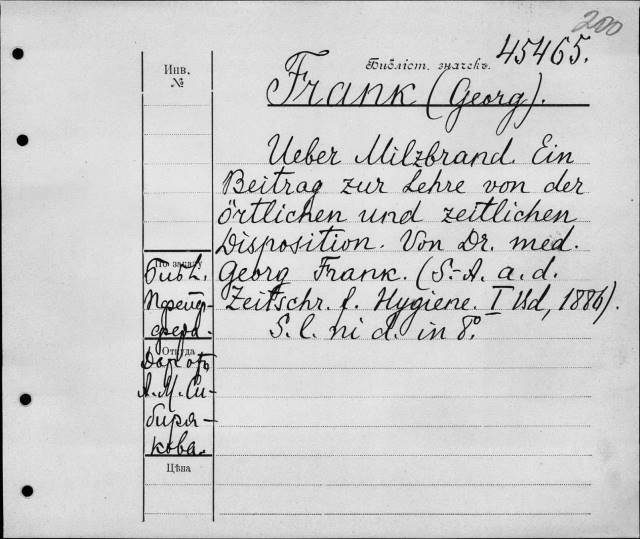 200
Инв.
№
Библіот. значекъ.
45465.
Frank (Georg).
Ueber Milzbrand. Ein
Beitrag zur Lehre von der
örtlichen und zeitlichen
Disposition. Von Dr. med.
Georg Frank. (S.-A. a. d.
Zeitschr. f. Hygiene. I Bd, 1886).
S. l. ni d. in 8º.
По заказу
Библ.
Прейер-
сфера.
Откуда
Даръ отъ
А. М. Си-
биря-
кова.
Цѣна